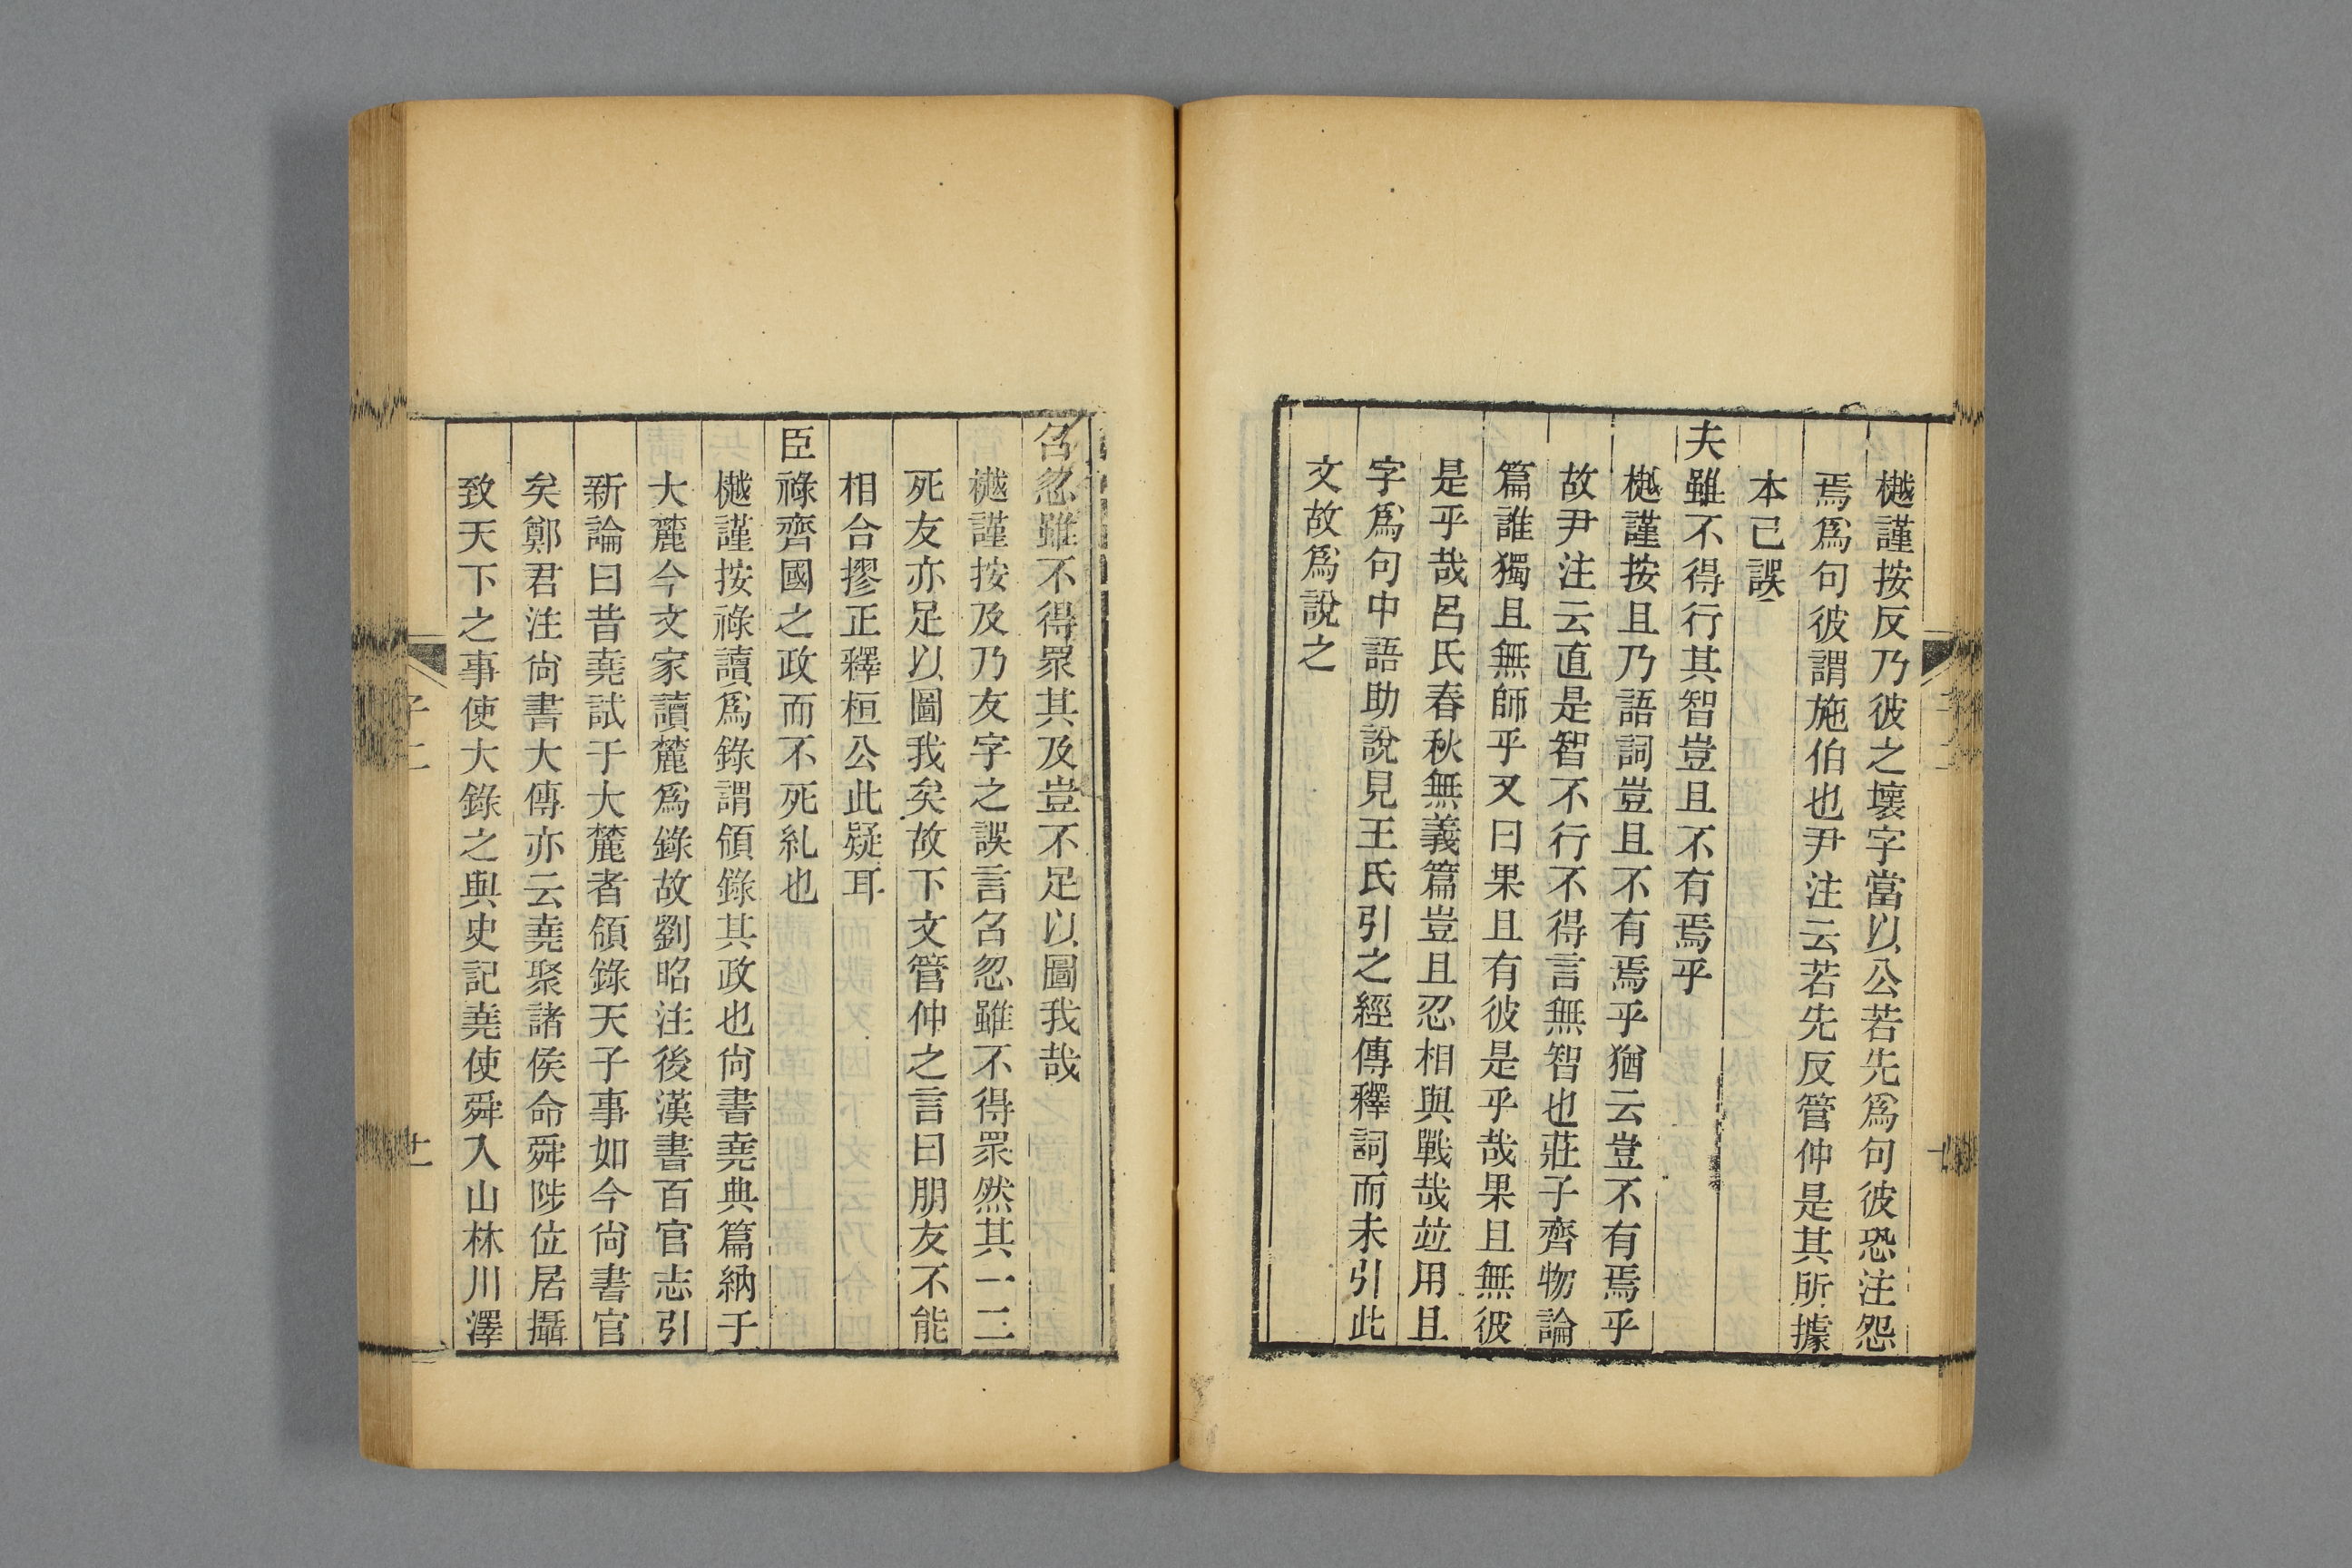 樾謹按反乃彼之壞字當以公若先爲句彼恐注怨
焉爲句彼謂施伯也尹注云若先反管仲是其所據
本已誤
夫雖不得行其智豈且不有焉乎
樾謹按且乃語詞豈且不有焉乎猶云豈不有焉乎
故尹注云直是智不行不得言無智也莊子齊物論
篇誰獨且無師乎又曰果且有彼是乎哉果且無彼
是乎哉呂氏春秋無義篇豈且忍相與戰哉竝用且
字爲句中語助說見王氏引之經傳釋詞而未引此
文故爲說之
召忽雖不得眾其及豈不足以圖我哉
樾謹按及乃友字之誤言召忽雖不得眾然其一二
死友亦足以圖我矣故下文管仲之言曰朋友不能
相合摎正釋桓公此疑耳
臣祿齊國之政而不死糺也
樾謹按祿讀爲錄謂領錄其政也尙書堯典篇納于
大麓今文家讀麓爲錄故劉昭注後漢書百官志引
新論曰昔堯試于大麓者領錄天子事如今尙書官
矣鄭君注尙書大傳亦云堯聚諸侯命舜陟位居攝
致天下之事使大錄之與史記堯使舜入山林川澤